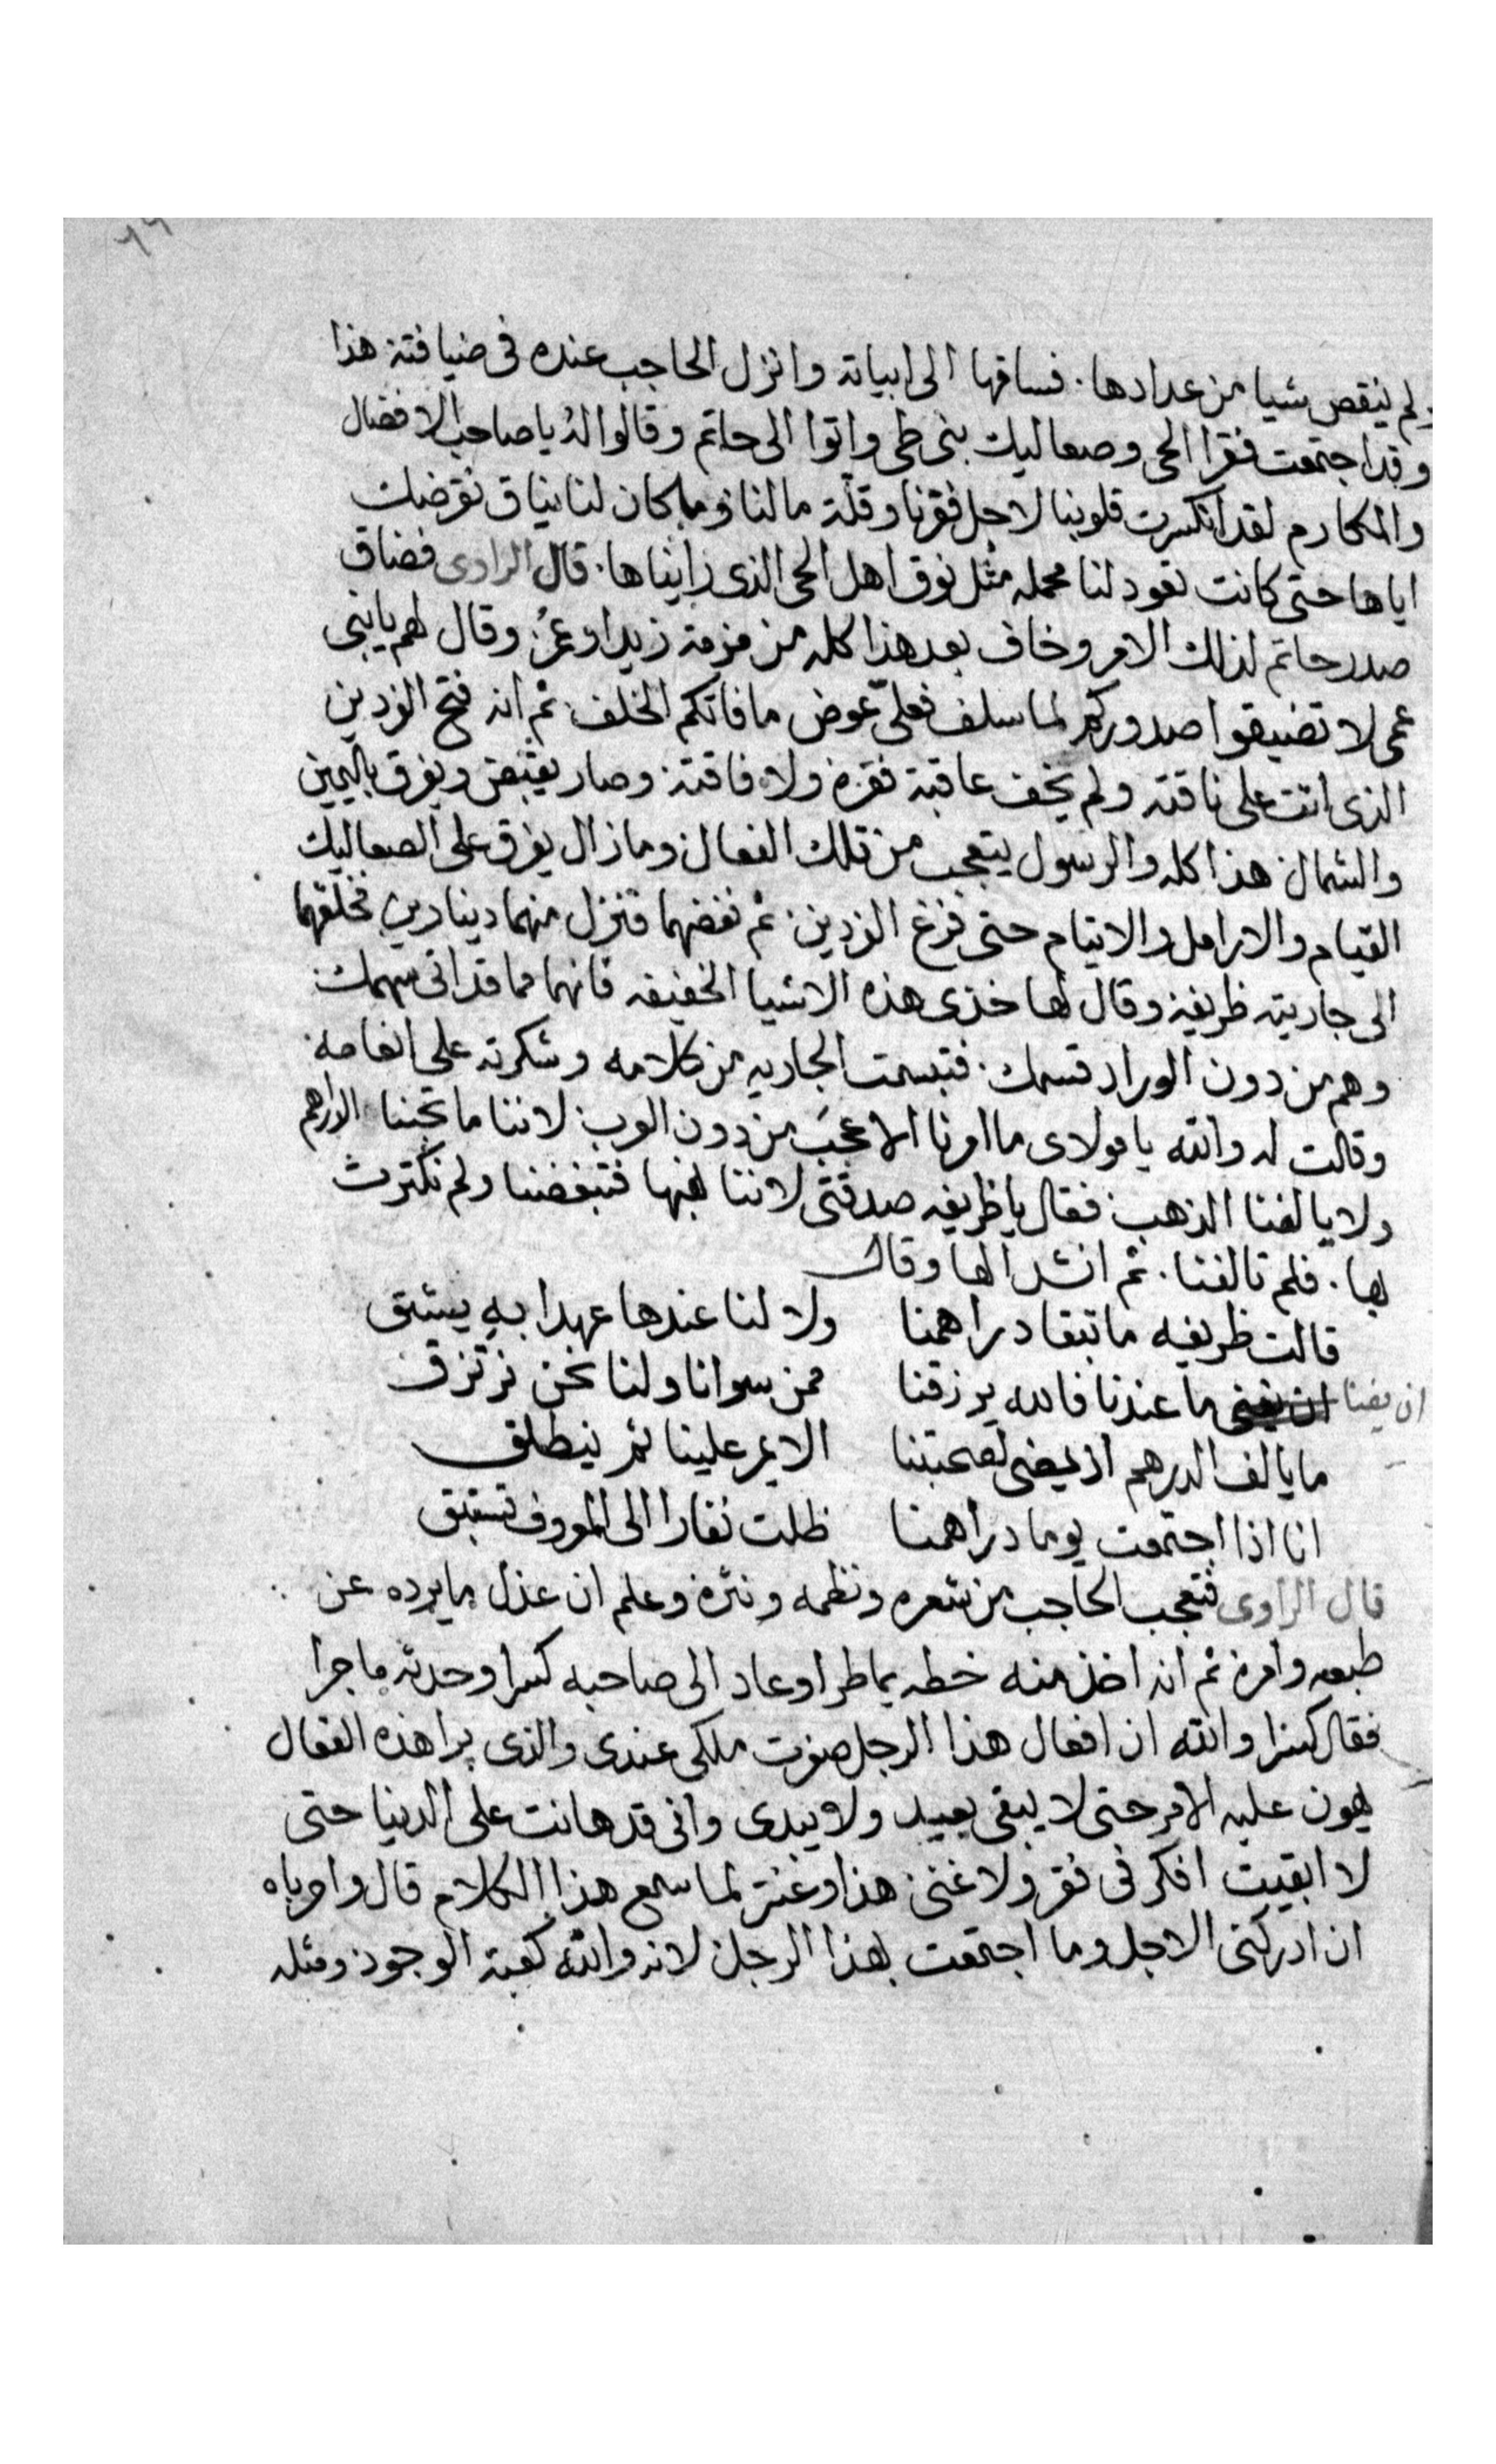 ٦٦
ولم ينقص شيا من عدادها. فساقها الى ابياته وانزل الحاجب عنده فى ضيافته هذا
وقد اجتمعت فقرا الحى وصعاليك بنى طى واتوا الى حاتم وقالوا له يا صاحب الافضال
والمكارم لقد انكسرت قلوبنا لاجل فقرنا وقلة مالنا وما كان لنا نياق نقرضك
اياها حتى كانت تعود لنا محمله مثل نوق اهل الحى الذى رايناها. قال الراوى فضاق
صدر حاتم لذلك الامر وخاف بعد هذا كله من زيدا وعمرُ وقال لهم يا بنى
عمى لا تضيقوا صدوركم لما سلف فعلىّ عوض ما فاتكم الخلف ثم انه فتح الزدين
الذى اتت على ناقته ولم يخف عاقبة فقره ولا فاقته وصار يقبض ويفرق باليمين
والشمال هذا كله والرسول يتعجب من تلك الفعال وما زال يفرق على الصعاليك
القيام والارامل والايتام حتى فرغ الزدين. ثم نفضهما فنزل منهما دينارين فحلقهما
الى جاريته ظريفة وقال لها خذى هذه الاشيا الخفيفه فانهما مما قد اتى سهمك
وهم من دون الوراد قسمك. فتبسمت الجاريه من كلامه وشكرته على انعامه
وقالت له والله يا مولاى ما امرنا الا عجبَ من دون العرب لاننا ما تحبنا الدراهم
ولا يالفنا الذهب فقال يا ظريفه صدقتى لاننا نحبها فتبغضنا ولم نكترث
بها. فلم تالفنا. ثم انشد الها وقال
قالت ظريفه ما تبقا دراهمنا ولا لنا عندها عهدا بهِ يسبق
ان يفنا ما عندنا فالله يرزقنا ممن سوانا ولنا نحن نرتزق
ما يالف الدرهم اذ يمضى لصحبتنا الا يمر علينا ثم ينطلق
انا اذا اجتمعت يوما دراهمنا ظلت نفارا الى المعروف تستبق
قال الراوى فتعجب الحاجب من شعره ونظمه ونثره وعلم ان عذل ما يرده عن
طبعه وامره ثم انه اخذ منه خطه بما طرا وعاد الى صاحبه كسرا وحدثه بما جرا
فقال كسرا والله ان افعال هذا الرجل صغرت ملكى عندى والذى يرا هذه الفعال
يهون عليه الامر حتى لا يبقى يعيد ولا يبدى وانى قد هانت على الدنيا حتى
لا ابقيت افكر فى فقر ولا غنى هذا وعنتر لما سمع هذا الكلام قال واحرباه
ان ادركنى الاجل وما اجتمعت بهذا الرجل لانه والله كعبة الوجود ومثله